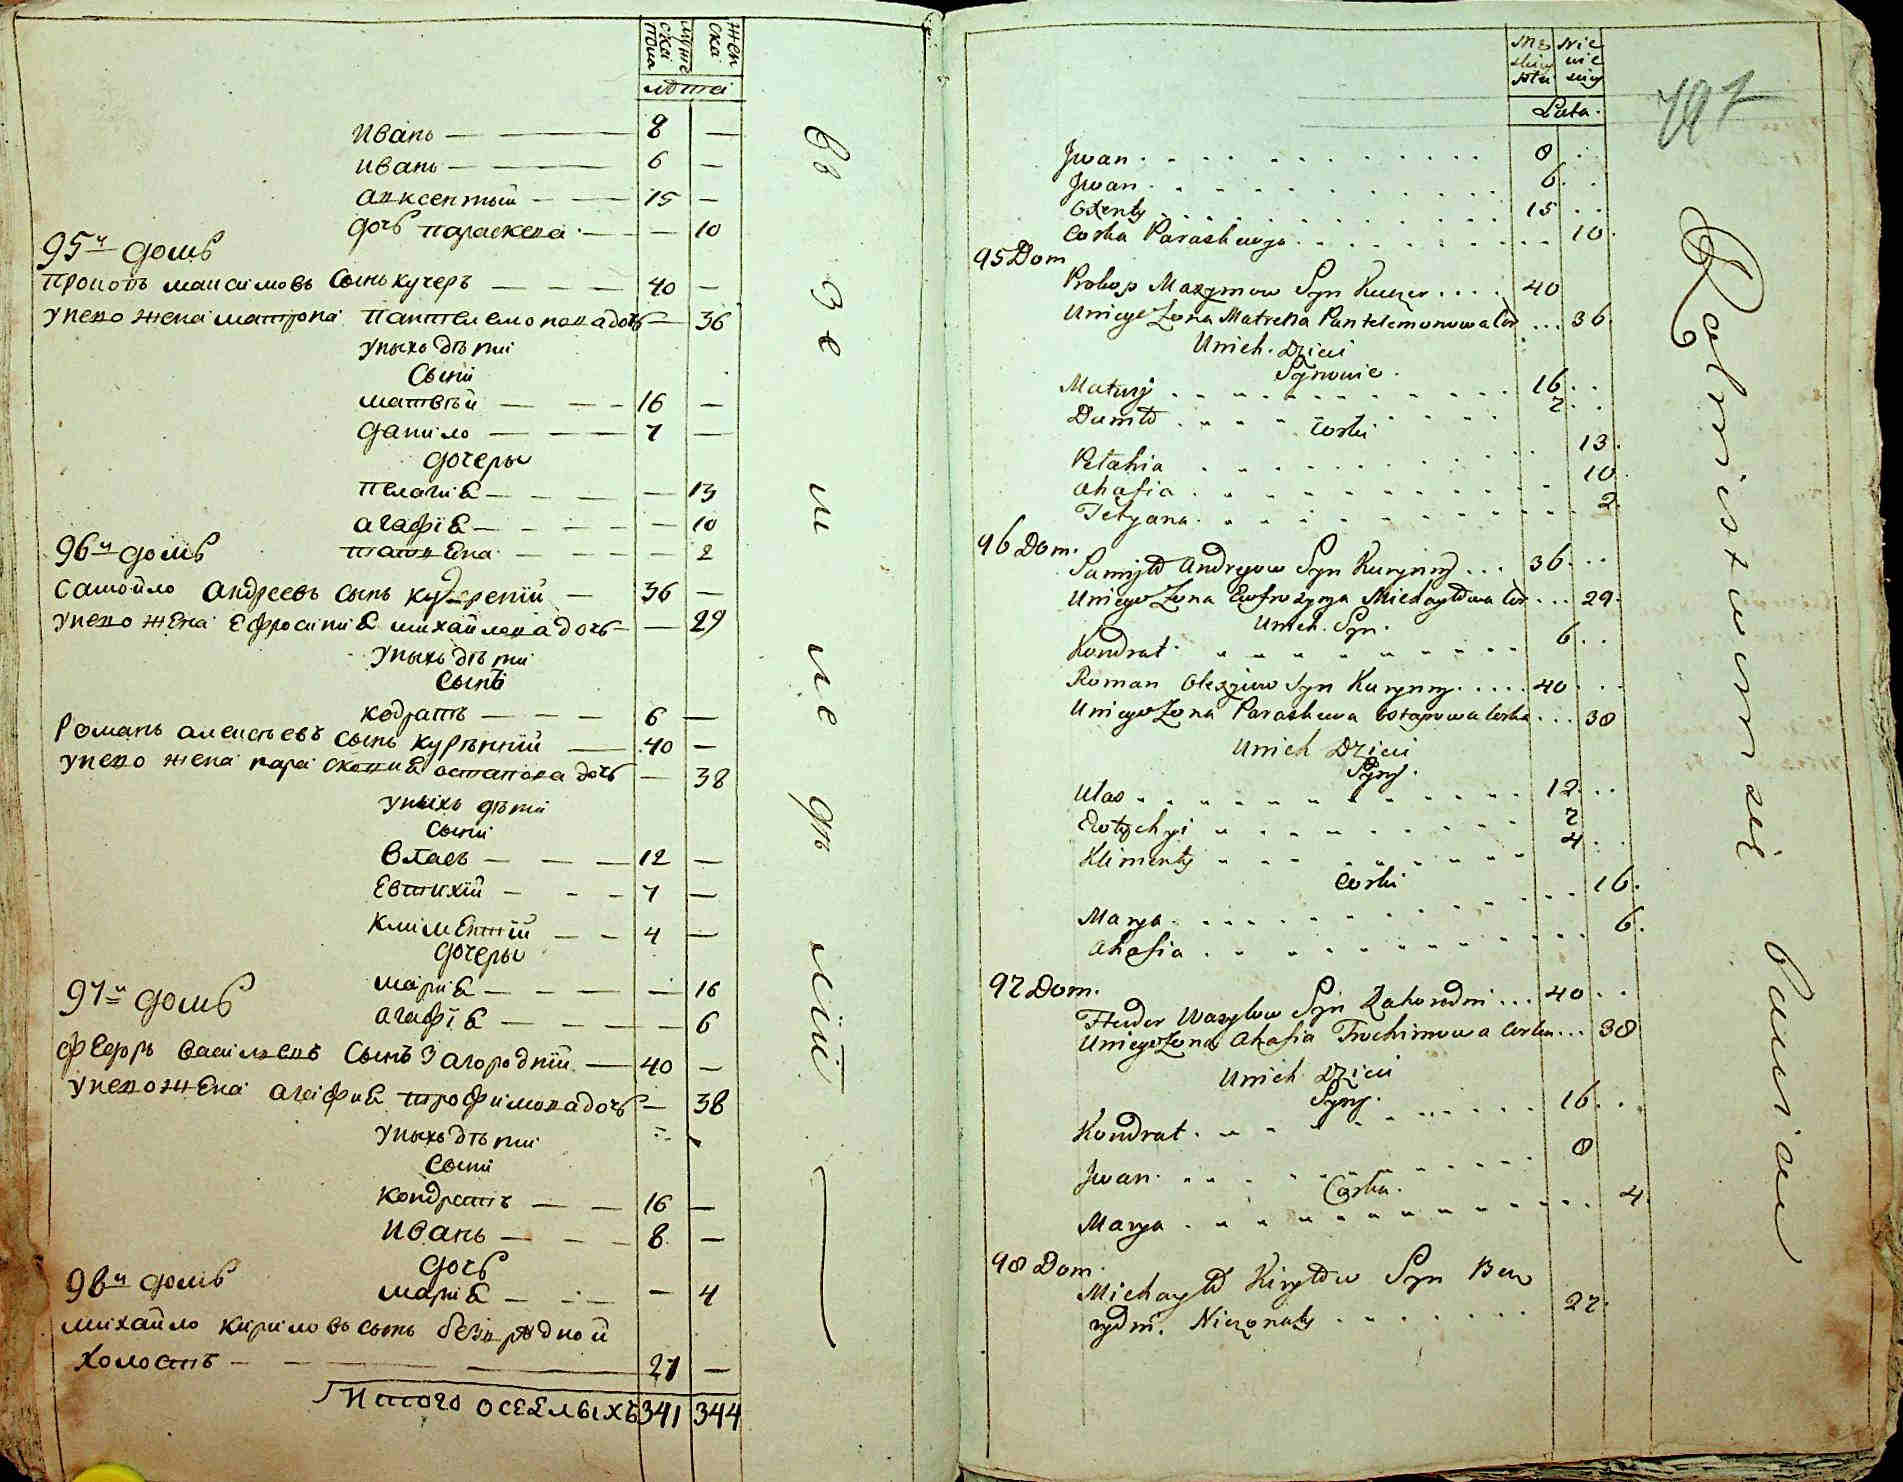 мужеска пола
женска
лѣта
Иванъ — — — 8 —
Иванъ — — — 6 —
Авксентий — — 15 —
дочь Параскева — — 10
95й домъ
Прокопъ Максимовъ сынъ Кучеръ — — — 40 —
у него жена Матрона Пантелемонова дочь — 36
у ныхъ дѣти
сыны
Матвѣй — — — 16 —
Данило — — — 7 —
дочеры
Пелагия — — — — 13
Агафія — — — — 10
96й домъ
Татяна — — — — 2
Самойло Андреевъ сынъ Курения — 36 —
у него жена Ефросиния Михайлова дочь — — 29
у ныхъ дѣти
сынъ
Кодратъ — — — 6 —
Романъ Алексѣевъ сынъ Курѣнний — 40 —
у него жена Параскевия Остапова дочь — 38
у ныхъ дѣти
сыны
Власъ — — — 12 —
Евтихій — — — 7 —
Климентій — — 4 —
дочеры
Мария — — — — 16
97й домъ
Агафія — — — — 6
Федоръ Васильевъ сынъ Загородній — 40 —
у него жена Агафия Трофимова дочь — 38
у ныхъ дѣти
сыны
Кондратъ — — 16 —
Иванъ — — — 8 —
дочь
98й домъ
Мария — — — — 4
Михайло Кириловъ сынъ безродной
холостъ — — — 27 —
Итого оселыхъ 341 344
въ земледеліи
Męskiey płci
Niewieściey
Lata
Jwan 8
Jwan 6
Oxenty 15
Corka Paraskewja 10
95 Dom
Prokop Maxymow Syn Kuczer 40
Uniego Zona Matrena Pantelemonowa Cor 36
Unich Dzieci
Synowie
Matwij 16
Daniło 7
Corki
Pełahia 13
Ahafia 10
Tetyana 2
96 Dom.
Samyło Andryow Syn Kurynny 36
Uniego Zona Ewfrozyna Michayłowa Cor 29
Unich Syn.
Kondrat 6
Roman Olexyiow Syn Kurynny 40
Uniego Zona Paraskewa Ostapowa Corka 38
Unich Dzieci
Syny.
Ułas 12
Ewtychyi 7
Klimenty 4
Corki
Marya 16
Ahafia 6
97 Dom.
Fteder Wasylow Syn Zahorodni 40
Uniego Zona Ahafia Trochimowa Corka 38
Unich Dzieci
Syny.
Kondrat 16
Jwan 8
Corka.
Marya 4
98 Dom.
Michayło Kiryłow Syn Bez
rydni. Nieżonaty 27